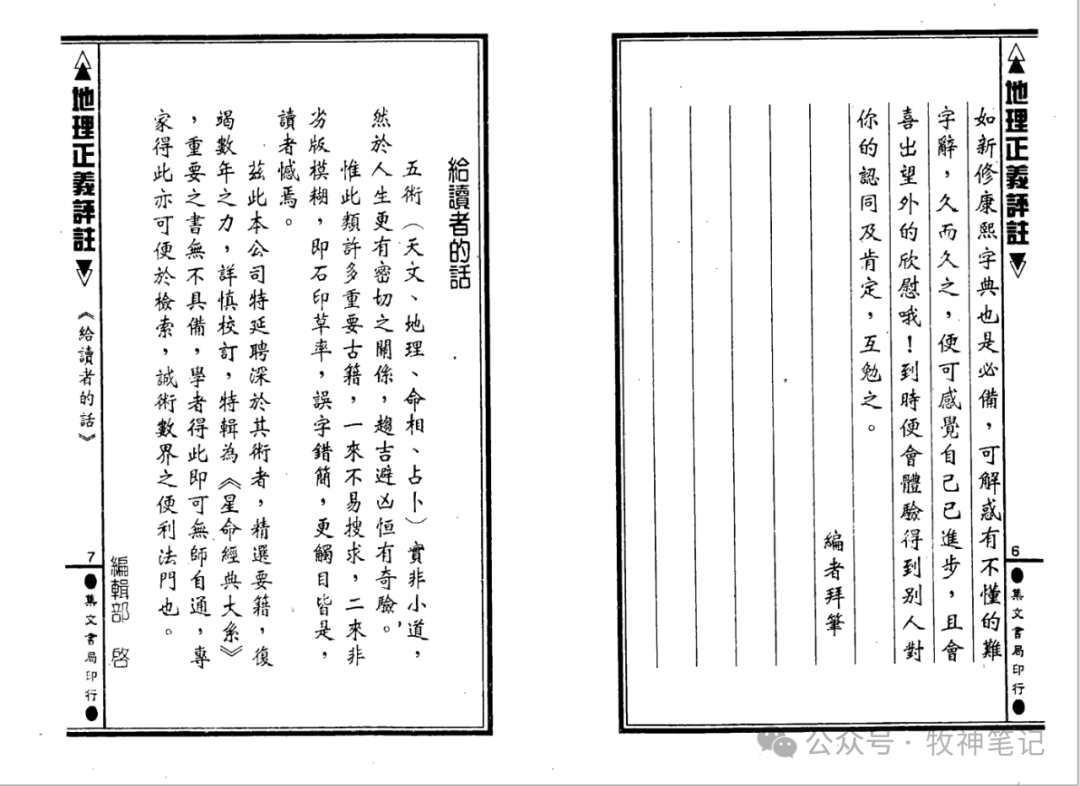 地理正義評註
6
集文書局印行
如新修康熙字典也是必備，可解惑有不懂的難
字辭，久而久之，便可感覺自己已進步，且會
喜出望外的欣慰哦！到時便會體驗得到別人對
你的認同及肯定，互勉之。
編者拜筆
給讀者的話
五術（天文、地理、命相、占卜）實非小道，
然於人生更有密切之關係，趨吉避凶恒有奇驗。
惟此類許多重要古籍，一來不易搜求，二來非
劣版模糊，即石印草率，誤字錯簡，更觸目皆是，
讀者憾焉。
茲此本公司特延聘深於其術者，精選要籍，復
竭數年之力，詳慎校訂，特輯為《星命經典大系》
，重要之書無不具備，學者得此即可無師自通，專
家得此亦可便於檢索，誠術數界之便利法門也。
編輯部　啓
地理正義評註
《給讀者的話》
7
集文書局印行
公众号·牧神笔记